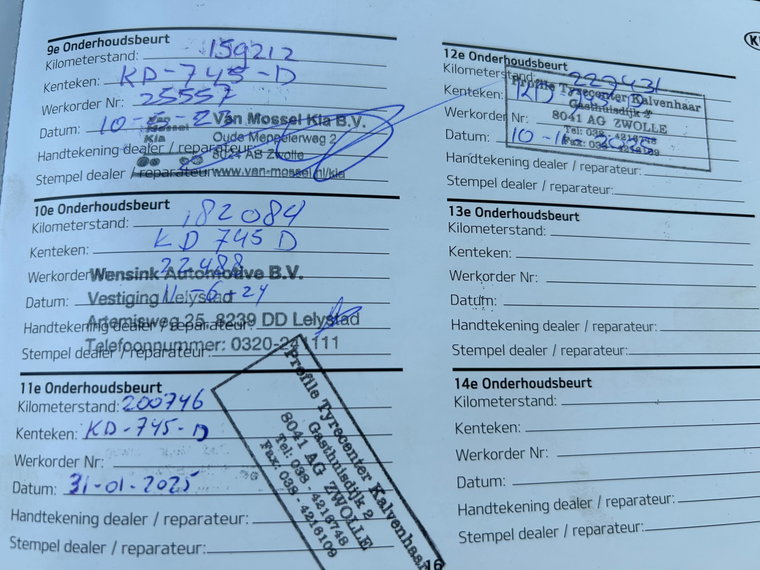 9e Onderhoudsbeurt
Kilometerstand: 159212
Kenteken: KD-745-D
Werkorder Nr: 25557
Van Mossel Kia B.V.
Datum: 10-
Oude Meppelerweg 2
Handtekening dealer / reparateur:
8024 AB Zwolle
Stempel dealer / reparateur:
www.van-mossel.nl/kia
10e Onderhoudsbeurt
Kilometerstand: 182084
Kenteken: KD 745 D
Werkorder 22488
Wensink Automotive B.V.
Datum: 11-6-24
Vestiging Lelystad
Handtekening dealer / reparateur:
Artemisweg 25, 8239 DD Lelystad
Stempel dealer / reparateur:
Telefoonnummer: 0320-241111
11e Onderhoudsbeurt
Kilometerstand: 200746
Kenteken: KD-745-D
Werkorder Nr:
Datum: 31-01-2025
Handtekening dealer / reparateur:
Stempel dealer / reparateur:
Profile Tyrecenter Kalvenhaar
Gasthuisdijk 2
8041 AG ZWOLLE
Tel: 038 - 4216748
Fax: 038 - 4216109
16
12e Onderhoudsbeurt
Kilometerstand: 227431
Kenteken: KD
Werkorder Nr:
Datum: 10-
Profile Tyrecenter Kalvenhaar
Gasthuisdijk 2
8041 AG ZWOLLE
Tel: 038 - 4216748
Fax: 038 - 4216109
Handtekening dealer / reparateur:
Stempel dealer / reparateur:
13e Onderhoudsbeurt
Kilometerstand:
Kenteken:
Werkorder Nr:
Datum:
Handtekening dealer / reparateur:
Stempel dealer / reparateur:
14e Onderhoudsbeurt
Kilometerstand:
Kenteken:
Werkorder Nr:
Datum:
Handtekening dealer / reparateur:
Stempel dealer / reparateur: